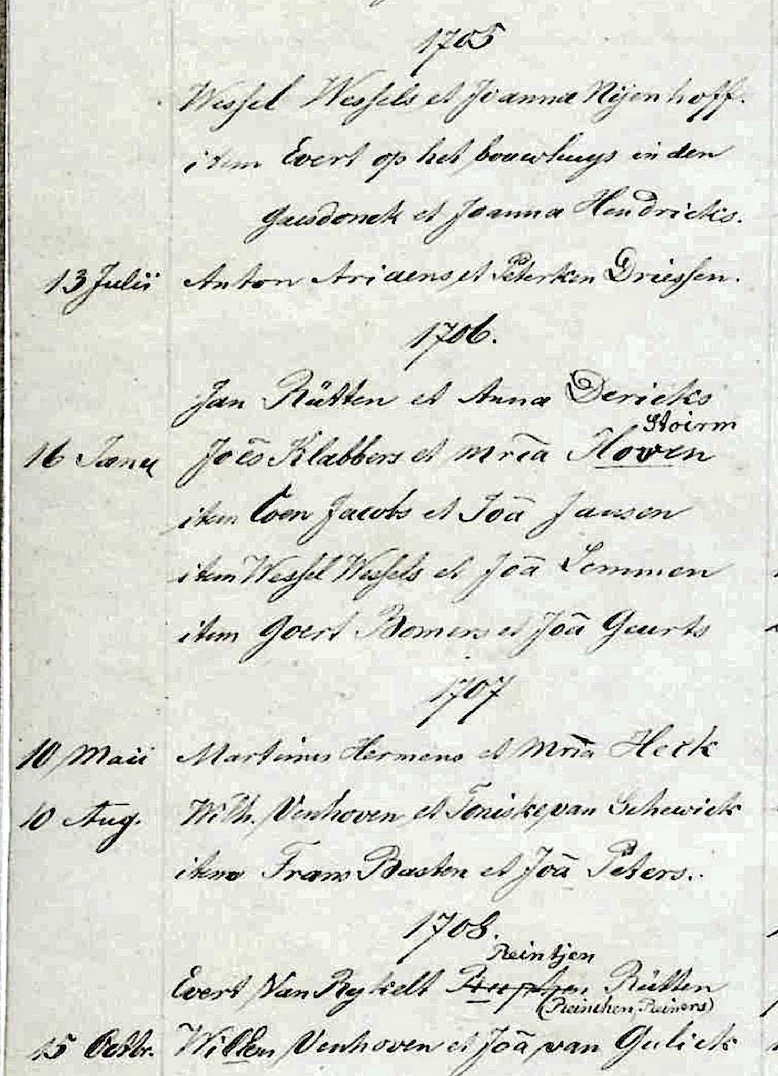 1705
Wessel Wessels et Joanna Nijenhoff.
item Evert op het bouwhuys in den
Gaesdonck et Joanna Hendricks.
13 Julii Anton Ariaens et Peterken Driessen.
1706.
Jan Rütten et Anna Dericks
Stoirm
16 Janu Joēs Klabbers et Mrīa Hoven
item Coen Jacobs et Joā Jansen
item Wessel Wessels et Joā Lemmen
item Goert Bomers et Joā Geurts
1707
10 Maii Martinus Hermens et Mrīa Heck
10 Aug. Wilh. Venhoven et Toniske van Gehewick
item Frans Basten et Joā Peters.
1708.
Reintjen
Evert Van Rykelt Rütten
(Reinchen Reiners)
15 Octbr. Willem Venhoven et Joā van Gulick